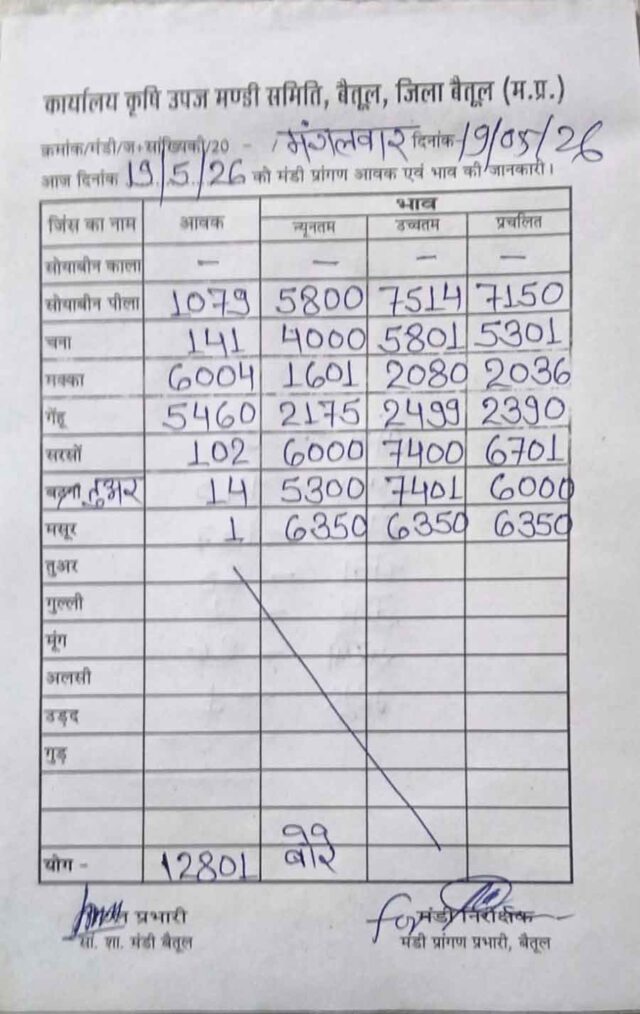 कार्यालय कृषि उपज मण्डी समिति, बैतूल, जिला बैतूल (म.प्र.)
क्रमांक/मंडी/ज+सांख्यिकी/20 - / मंगलवार दिनांक 19/05/26
आज दिनांक 19/5/26 को मंडी प्रांगण आवक एवं भाव की जानकारी।
जिंस का नाम आवक भाव
न्यूनतम उच्चतम प्रचलित
सोयाबीन काला — — — —
सोयाबीन पीला 1079 5800 7514 7150
चना 141 4000 5801 5301
मक्का 6004 1601 2080 2036
गेंहू 5460 2175 2499 2390
सरसों 102 6000 7400 6701
तुअर 14 5300 7401 6000
मसूर 1 6350 6350 6350
तुअर
गुल्ली
मूंग
अलसी
उड़द
गुड़
योग - 12801 बोरे
प्रभारी मंडी निरीक्षक
सां. शा. मंडी बैतूल मंडी प्रांगण प्रभारी, बैतूल